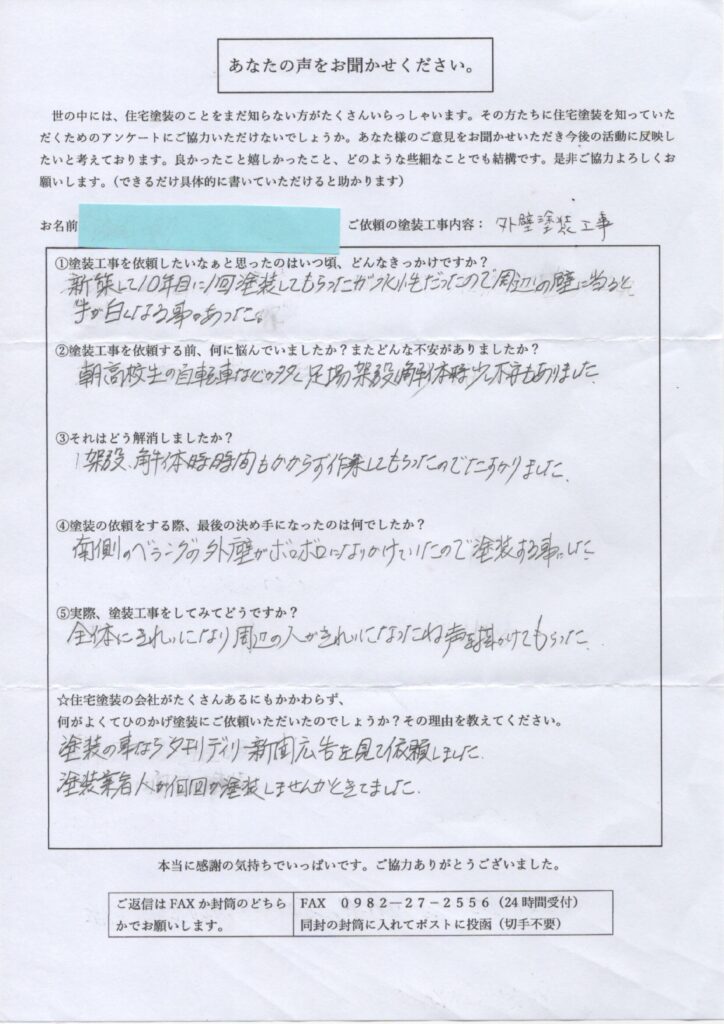 あなたの声をお聞かせください。
世の中には、住宅塗装のことをまだ知らない方がたくさんいらっしゃいます。その方たちに住宅塗装を知っていた
だくためのアンケートにご協力いただけないでしょうか。あなた様のご意見をお聞かせいただき今後の活動に反映し
たいと考えております。良かったこと嬉しかったこと、どのような些細なことでも結構です。是非ご協力よろしくお
願いします。（できるだけ具体的に書いていただけると助かります）
お名前 ご依頼の塗装工事内容： 外壁塗装工事
①塗装工事を依頼したいなぁと思ったのはいつ頃、どんなきっかけですか？
新築して10年目に1回塗装してもらったが水性だったので周辺の壁に当ると
手が白くなる事があった。
②塗装工事を依頼する前、何に悩んでいましたか？またどんな不安がありましたか？
朝高校生の自転車などが多く足場架設、解体時少し不安もありました
③それはどう解消しましたか？
架設、解体時時間もかからず作業してもらったのでたすかりました
④塗装の依頼をする際、最後の決め手になったのは何でしたか？
南側のベランダの外壁がボロボロになりかけていたので塗装する事にした
⑤実際、塗装工事をしてみてどうですか？
全体にきれいになり周辺の人がきれいになったね声を掛けてもらった
☆住宅塗装の会社がたくさんあるにもかかわらず、
何がよくてひのかげ塗装にご依頼いただいたのでしょうか？その理由を教えてください。
塗装の事なら夕刊デイリー新聞広告を見て依頼しました
塗装業者人が何回か塗装しませんかときてました
本当に感謝の気持ちでいっぱいです。ご協力ありがとうございました。
ご返信は FAX か封筒のどちら
かでお願いします。
FAX ０９８２－２７－２５５６（24 時間受付）
同封の封筒に入れてポストに投函（切手不要）